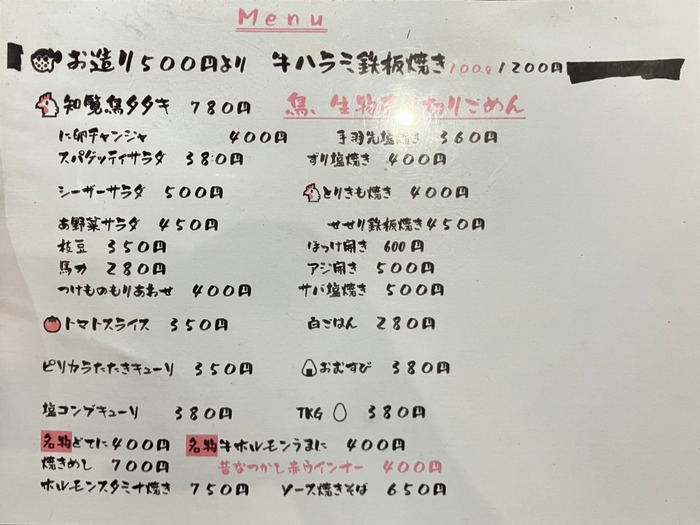 Menu
お造り500円より 牛ハラミ鉄板焼き100g1200円
知覧鳥タタキ 780円 鳥、生物 切りごめん
に卵チャンジャ 400円 手羽先塩焼き 360円
スパゲッティサラダ 380円 ずり塩焼き 400円
シーザーサラダ 500円 とりきも焼き 400円
お野菜サラダ 450円 せせり鉄板焼き450円
枝豆 350円 ほっけ開き 600円
馬力 280円 アジ開き 500円
つけものもりあわせ 400円 サバ塩焼き 500円
トマトスライス 350円 白ごはん 280円
ピリカラたたきキューリ 350円 おむすび 380円
塩コンブキューリ 380円 TKG 380円
名物どてに400円 名物牛ホルモンうまに 400円
焼きめし 700円 昔なつかし赤ウインナー 400円
ホルモンスタミナ焼き 750円 ソース焼きそば 650円